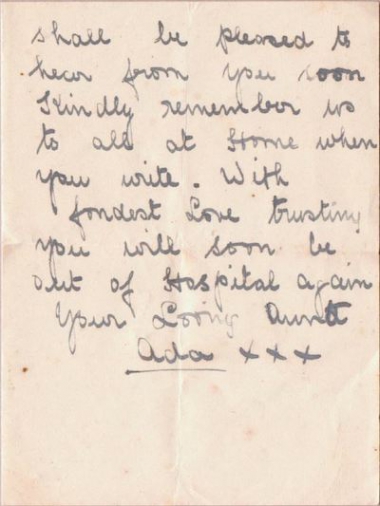 shall be pleased to
hear from you soon
Kindly remember us
to all at Home when
you write. With
fondest Love trusting
you will soon be
out of Hospital again
Your Loving Aunt
Ada xxx